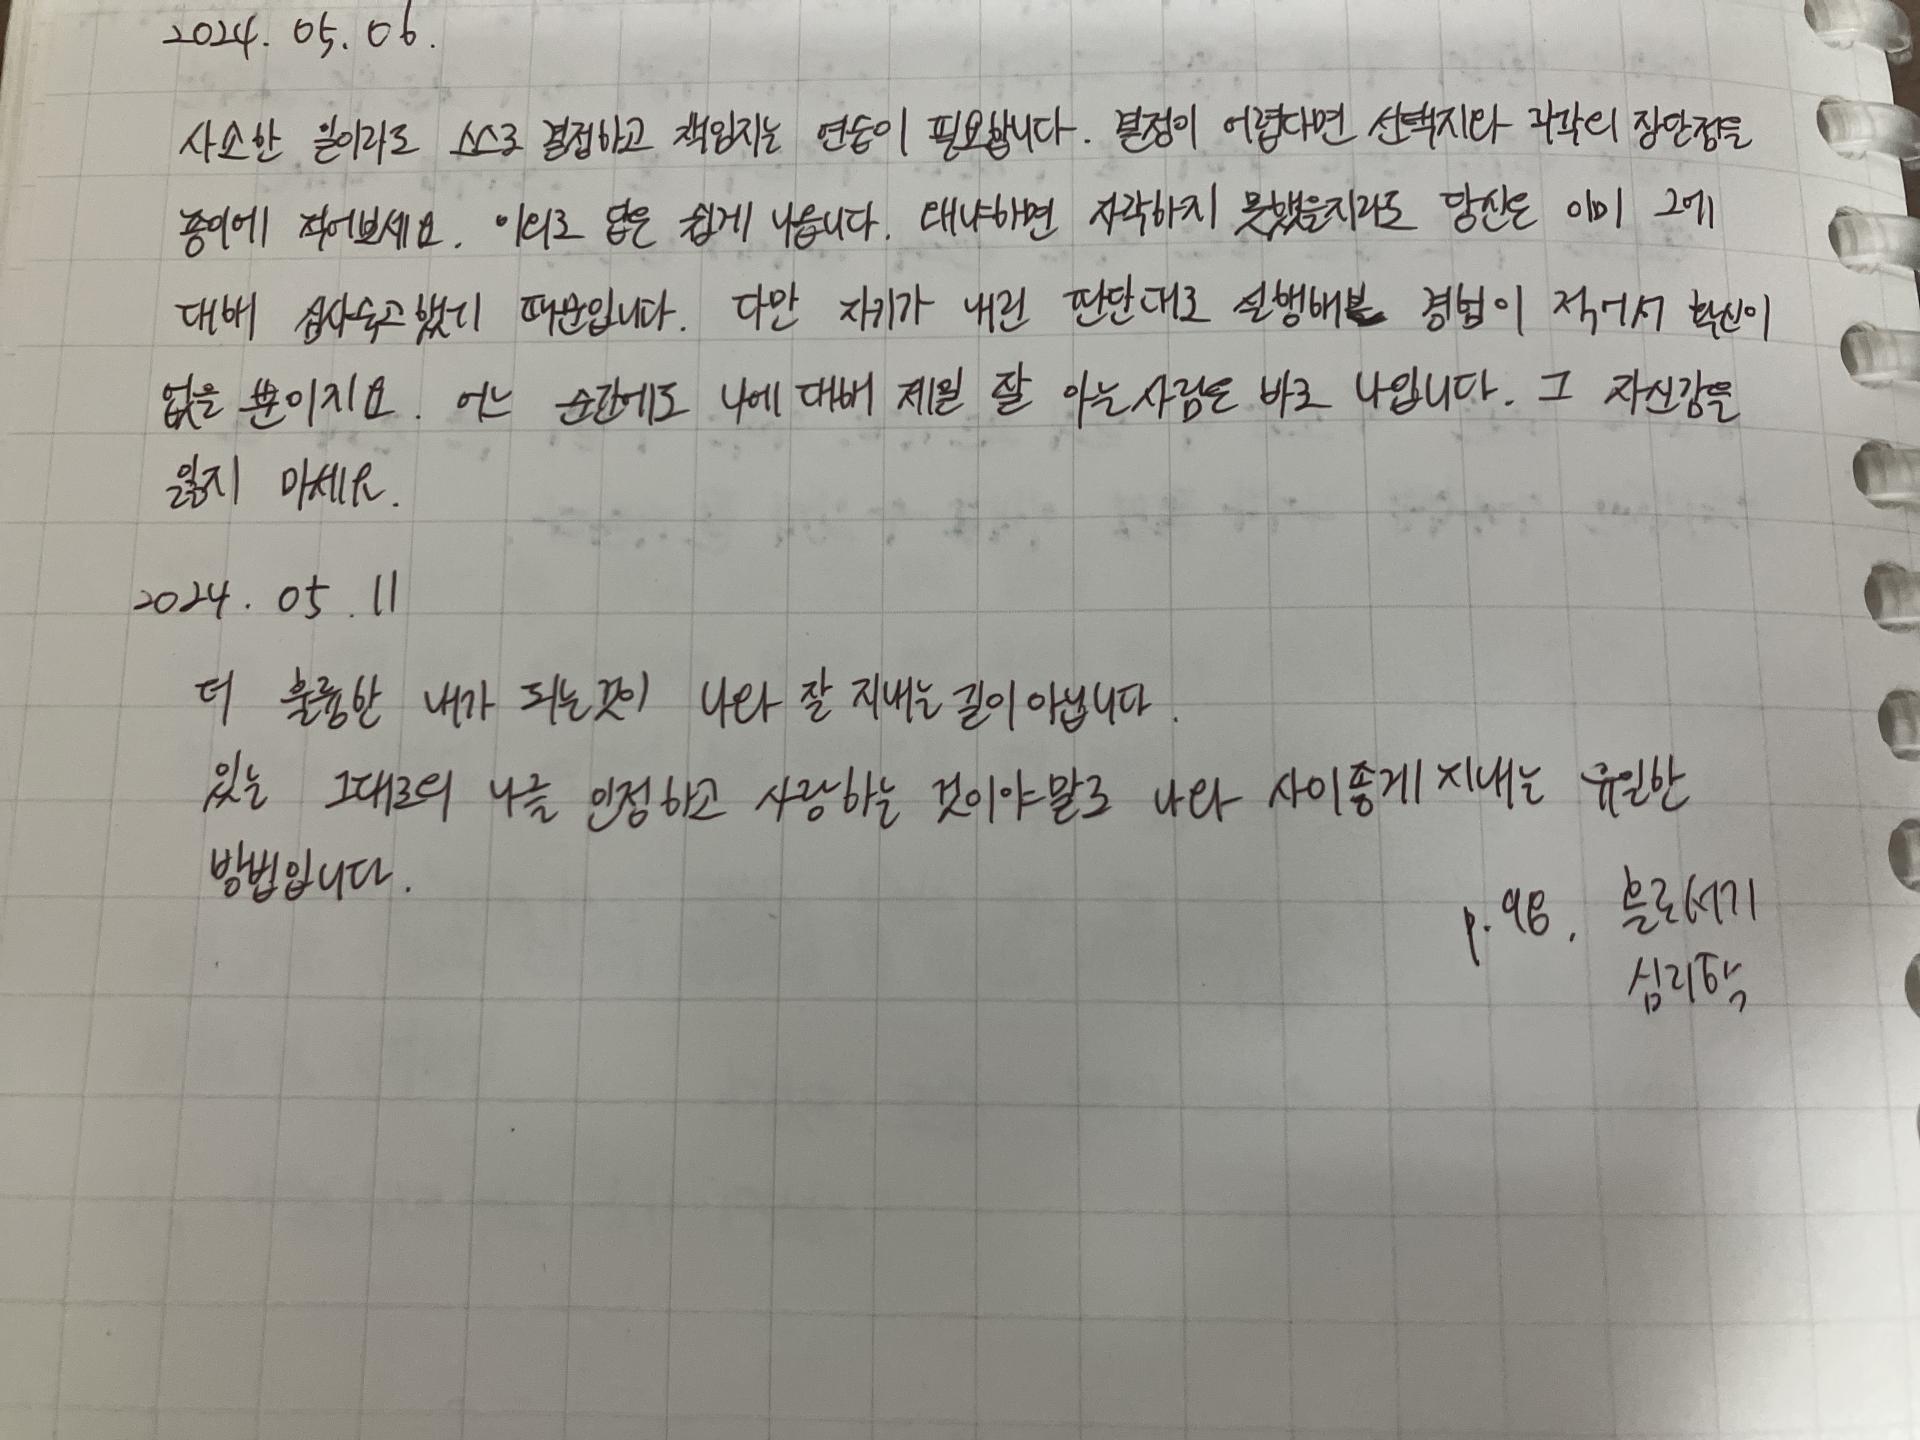 2024. 05. 06.
사소한 일이라도 스스로 결정하고 책임지는 연습이 필요합니다. 결정이 어렵다면 선택지와 각각의 장단점을
종이에 적어보세요. 의외로 답은 쉽게 나옵니다. 왜냐하면 자각하지 못했을지라도 당신은 이미 그에
대해 심사숙고했기 때문입니다. 다만 자기가 내린 판단대로 실행해본 경험이 적어서 확신이
없을 뿐이지요. 어느 순간에도 나에 대해 제일 잘 아는 사람은 바로 나입니다. 그 자신감을
잃지 마세요.
2024. 05. 11
더 훌륭한 내가 되는것이 나와 잘 지내는 길이 아닙니다.
있는 그대로의 나를 인정하고 사랑하는 것이야말로 나와 사이좋게 지내는 유일한
방법입니다.
p. 98. 홀로서기
심리학